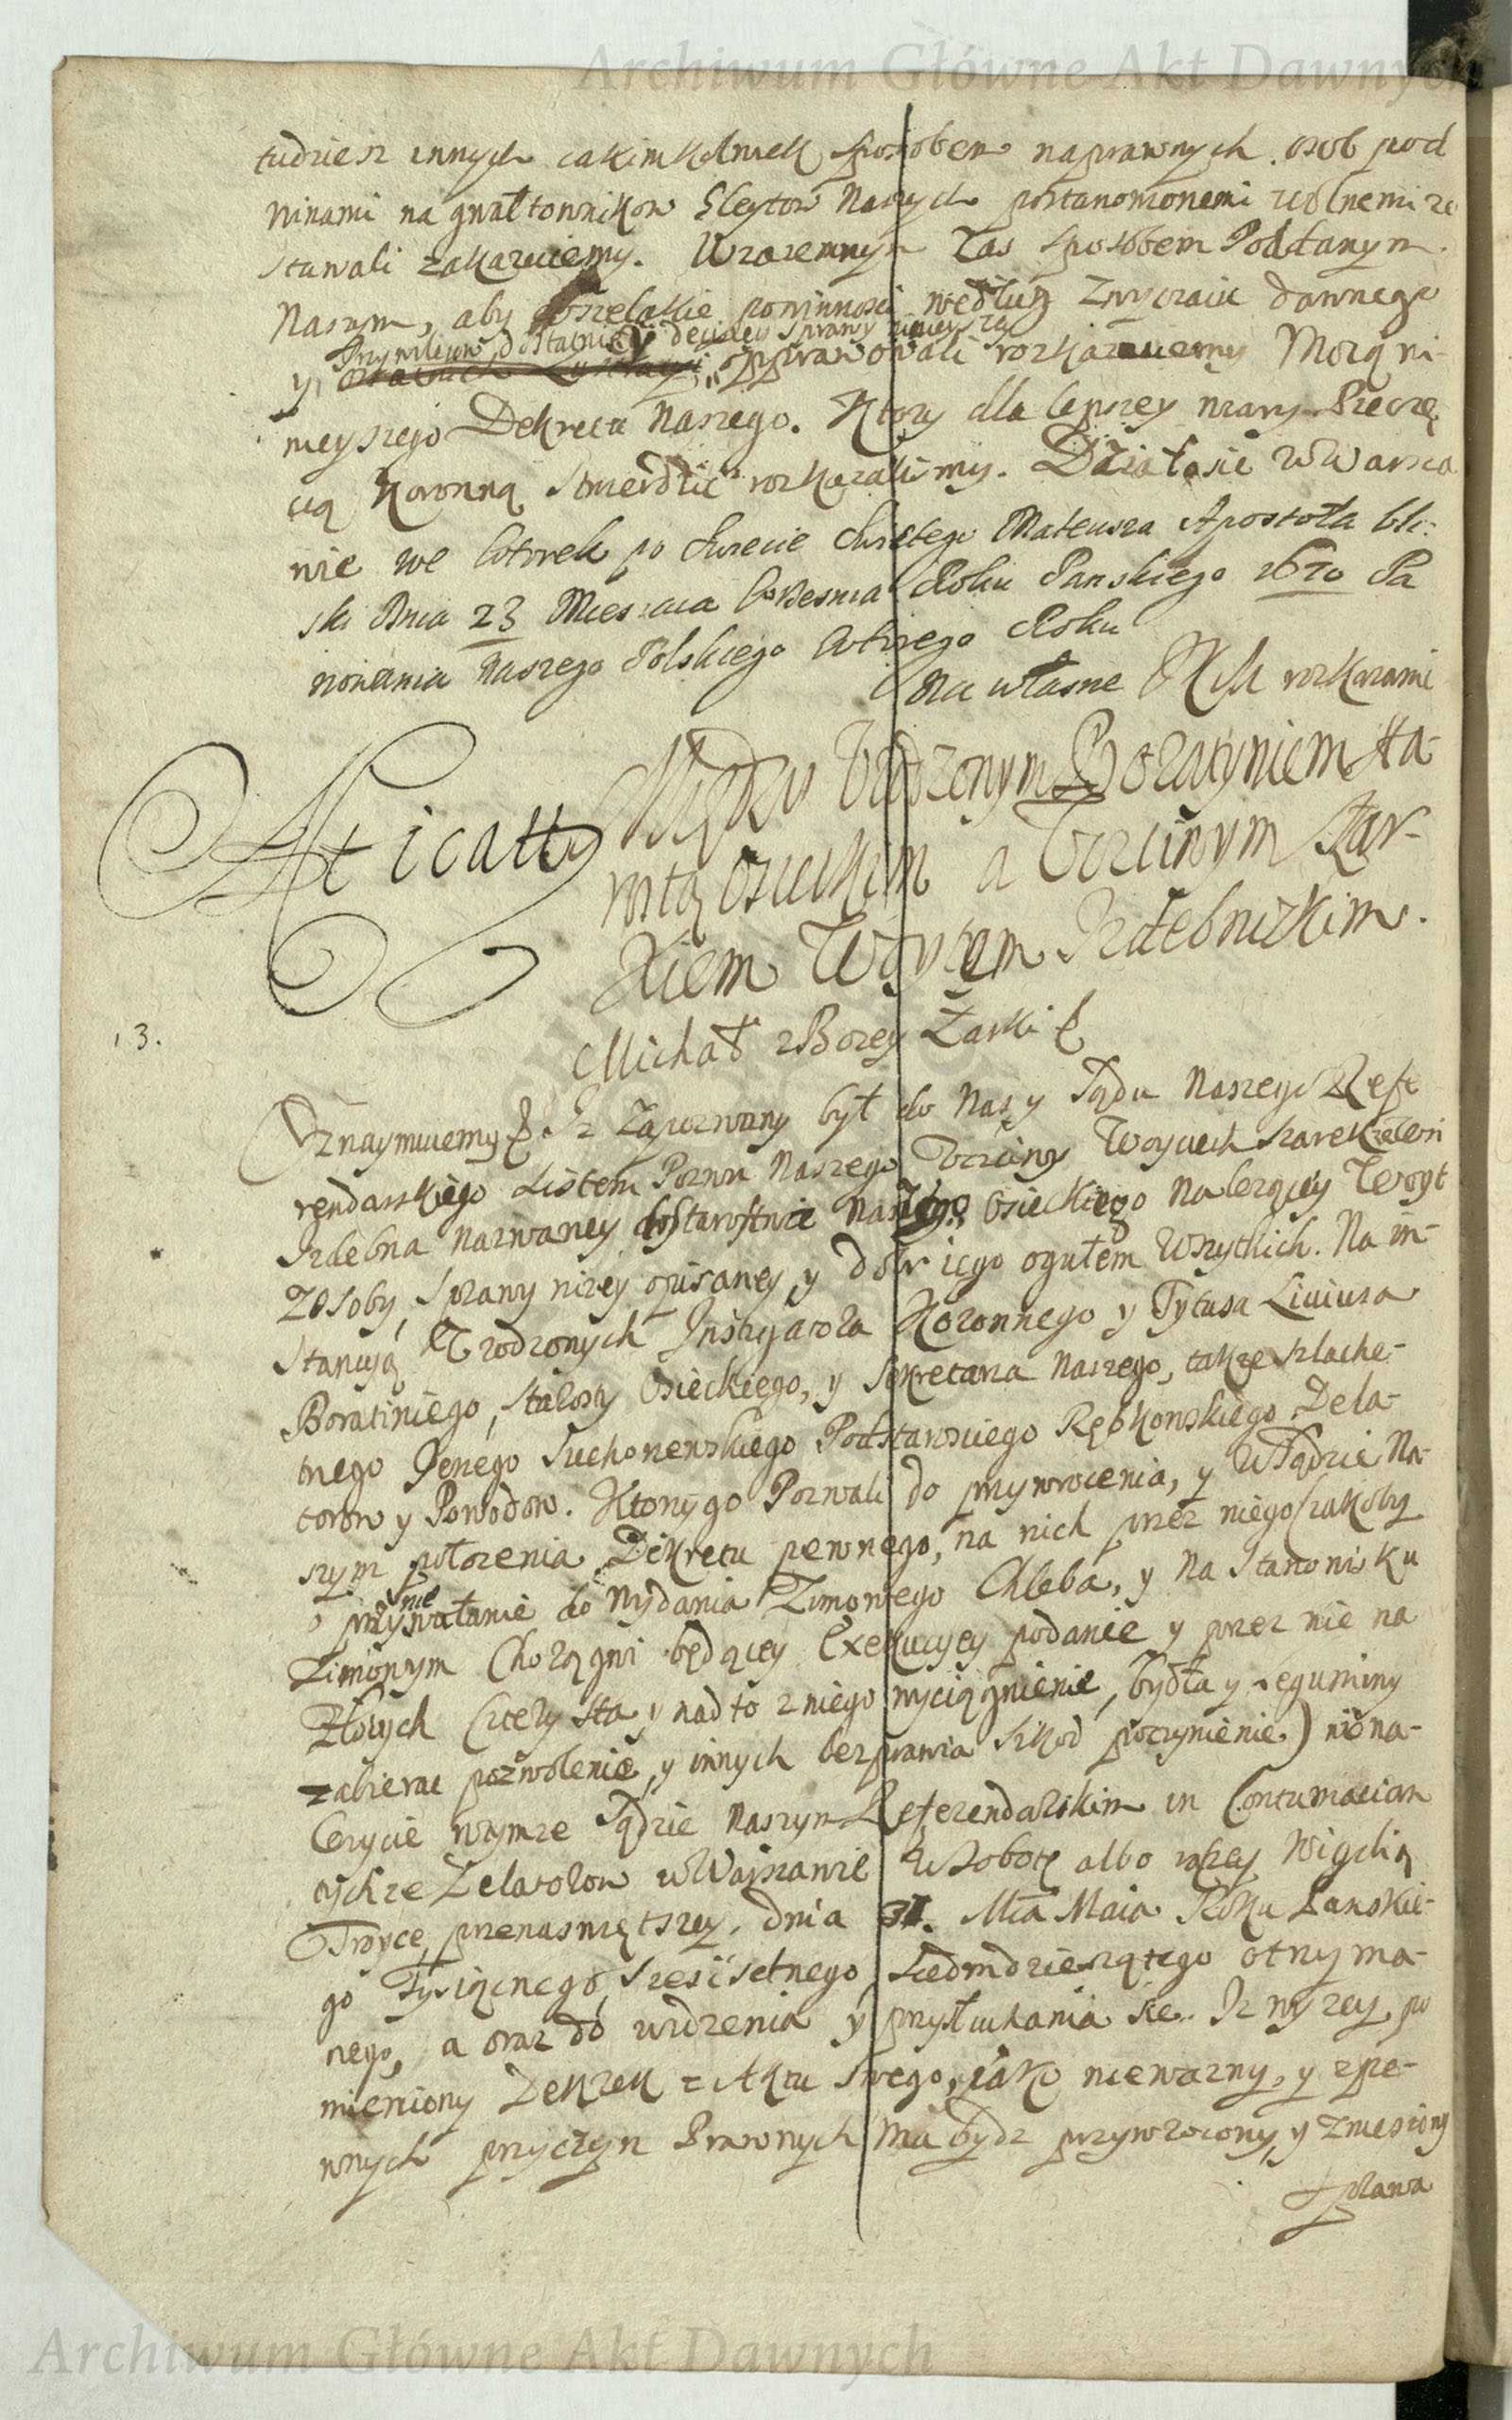 Archiwum Główne Akt Dawnych
tudziesz innych iakimkolwiek sposobem naprawnych osob pod
winami na gwałtownikow Gleytow Naszych postanowionemi wolnemi zo
stawali zakazuiemy. Wzaiemnym zas sposobem Poddanym
Naszym, aby wszelakie powinnosci według Zwyczaiu dawnego
Przywileiow dostatniey decisiey Sprawy ninieysza
y odprawowali rozkazuiemy Mocą ni-
nieyszego Dekretu Naszego. Ktory dla lepszey wiary Pieczę
cią Koronną Stwierdzic rozkazalismy. Działo sie w Warsza
wie we Wtorek po Swiecie Swiętego Mateusza Apostoła bli-
ski Dnia 23 Miesiaca Wrzesnia Roku Panskiego 1670 Pa
nowania Naszego Polskiego Wtorego Roku
Na własne JKM rozkazanie
Między Urodzonym Boratyniem sta-
rostą osieckim a Uczciwym Szar-
kiem Woytem Izdebnickim.
Michał z Bozey Łaski &
13.
Oznaymuiemy &. Iz Zapozwany był do Nas y Sądu Naszego Refe
rendarskiego Listem Pozwu Naszego Uczciwy Woyciech Szarek ze Wsi
Izdebna nazwaney do starostwa Naszego Osieckiego nalezącey Woyt
Z osoby, Sprawy nizey opisaney, y dobr iego ogułem Wszytkich. Na in-
stancyą Urodzonych Instygatora Koronnego y Tytusa Liviusa
Boratiniego, Starosty Osieckiego, y Sekretarza Naszego, takze szlache-
tnego Suchonenskiego Podstarosciego Rębkowskiego Dela-
torow y Powodow. Ktorzy go Pozwali do przywrocenia, y w Sądzie Na-
szym połozenia Dekretu pewnego, na nich przez niego (zakoby
o nie
przysłanie do wydania Zimowego Chleba, y na Stanowisku
Zimowym Chorągwi będącey Exekucyey podanie y przez nie na
Złotych Cztery sta y nad to z niego wyciągnienie, bydła y leguminy
zabierac pozwolenie, y innych bezprawia szkod poczynienie) niena-
lezycie wzwyz Sądzie Naszym Referendarskim in Contumaciam
tychze Delatorow w Warszawie w Sobotę albo wzey Wigilią
Troyce przenaswiętszey, dnia 31. Mca Maia Roku Panskie-
go Tysiącnego, Szescsetnego, Siedmdziesiątego otrzyma-
nego, a oraz do widzenia y przysłuchania sie. Iz wyzey po
mieniony Dekret z Aktu Swego, iako niewazny, y z pe-
wnych przyczyn Prawnych ma bydz przywrocony, y zniesiony
sprawa
Archiwum Główne Akt Dawnych